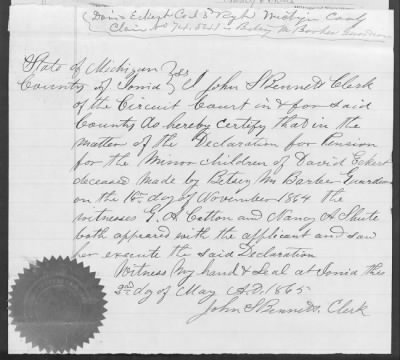 (David Eckert Co D 3d Regt Michigan Cavly
Claim No 74.821 — Betsey M Barber Guardian
State of Michigan } ss
County of Ionia } I John S Bennett Clerk
of the Circuit Court in & for said
County do hereby certify that in the
matter of the Declaration for Pension
for the Minor Children of David Eckert
deceased made by Betsey M Barber Guardian
on the 18th day of November 1864 the
witnesses G. A. Cotton and Nancy A Shute
both appeared with the applicant and saw
her execute the said Declaration
Witness My hand & Seal at Ionia this
2nd day of May A.D. 1865
John S Bennett. Clerk